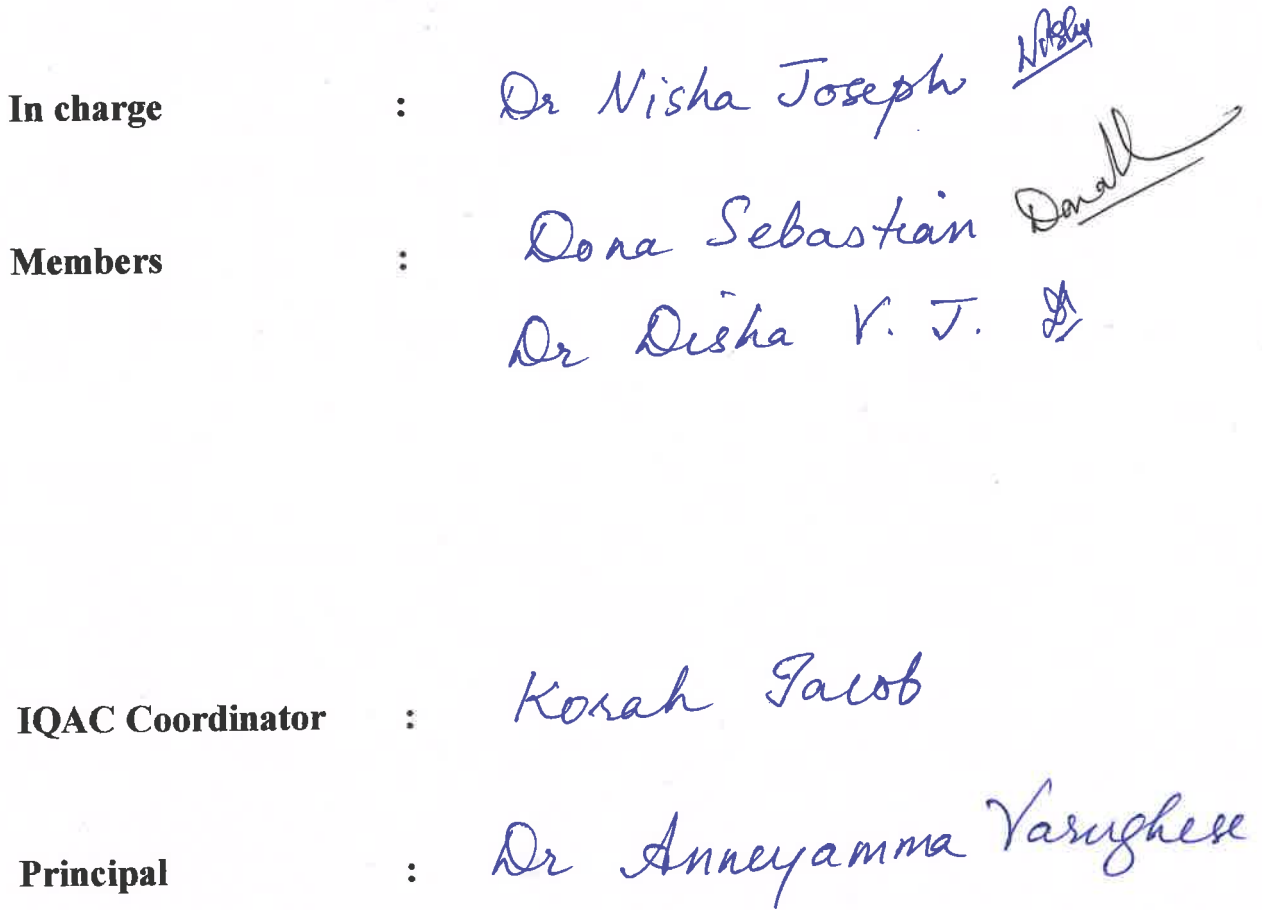 In charge : Dr Nisha Joseph Nisha
Members : Dona Sebastian
Dr Disha V. J.
IQAC Coordinator : Korah Jacob
Principal : Dr Anneyamma Varughese